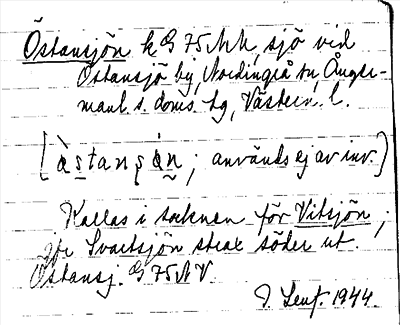 Östansjön k G 75 NV, sjö vid
Östansjö by, Nordingrå sn, Ånger-
manl. s. doms. tg, Västern. l.
[àstanʂön; används ej av inv.]
Kallas i socknen för Vitsjön;
jfr Svartsjön strax söder ut.
Östansj. G 75 NV.
1944.